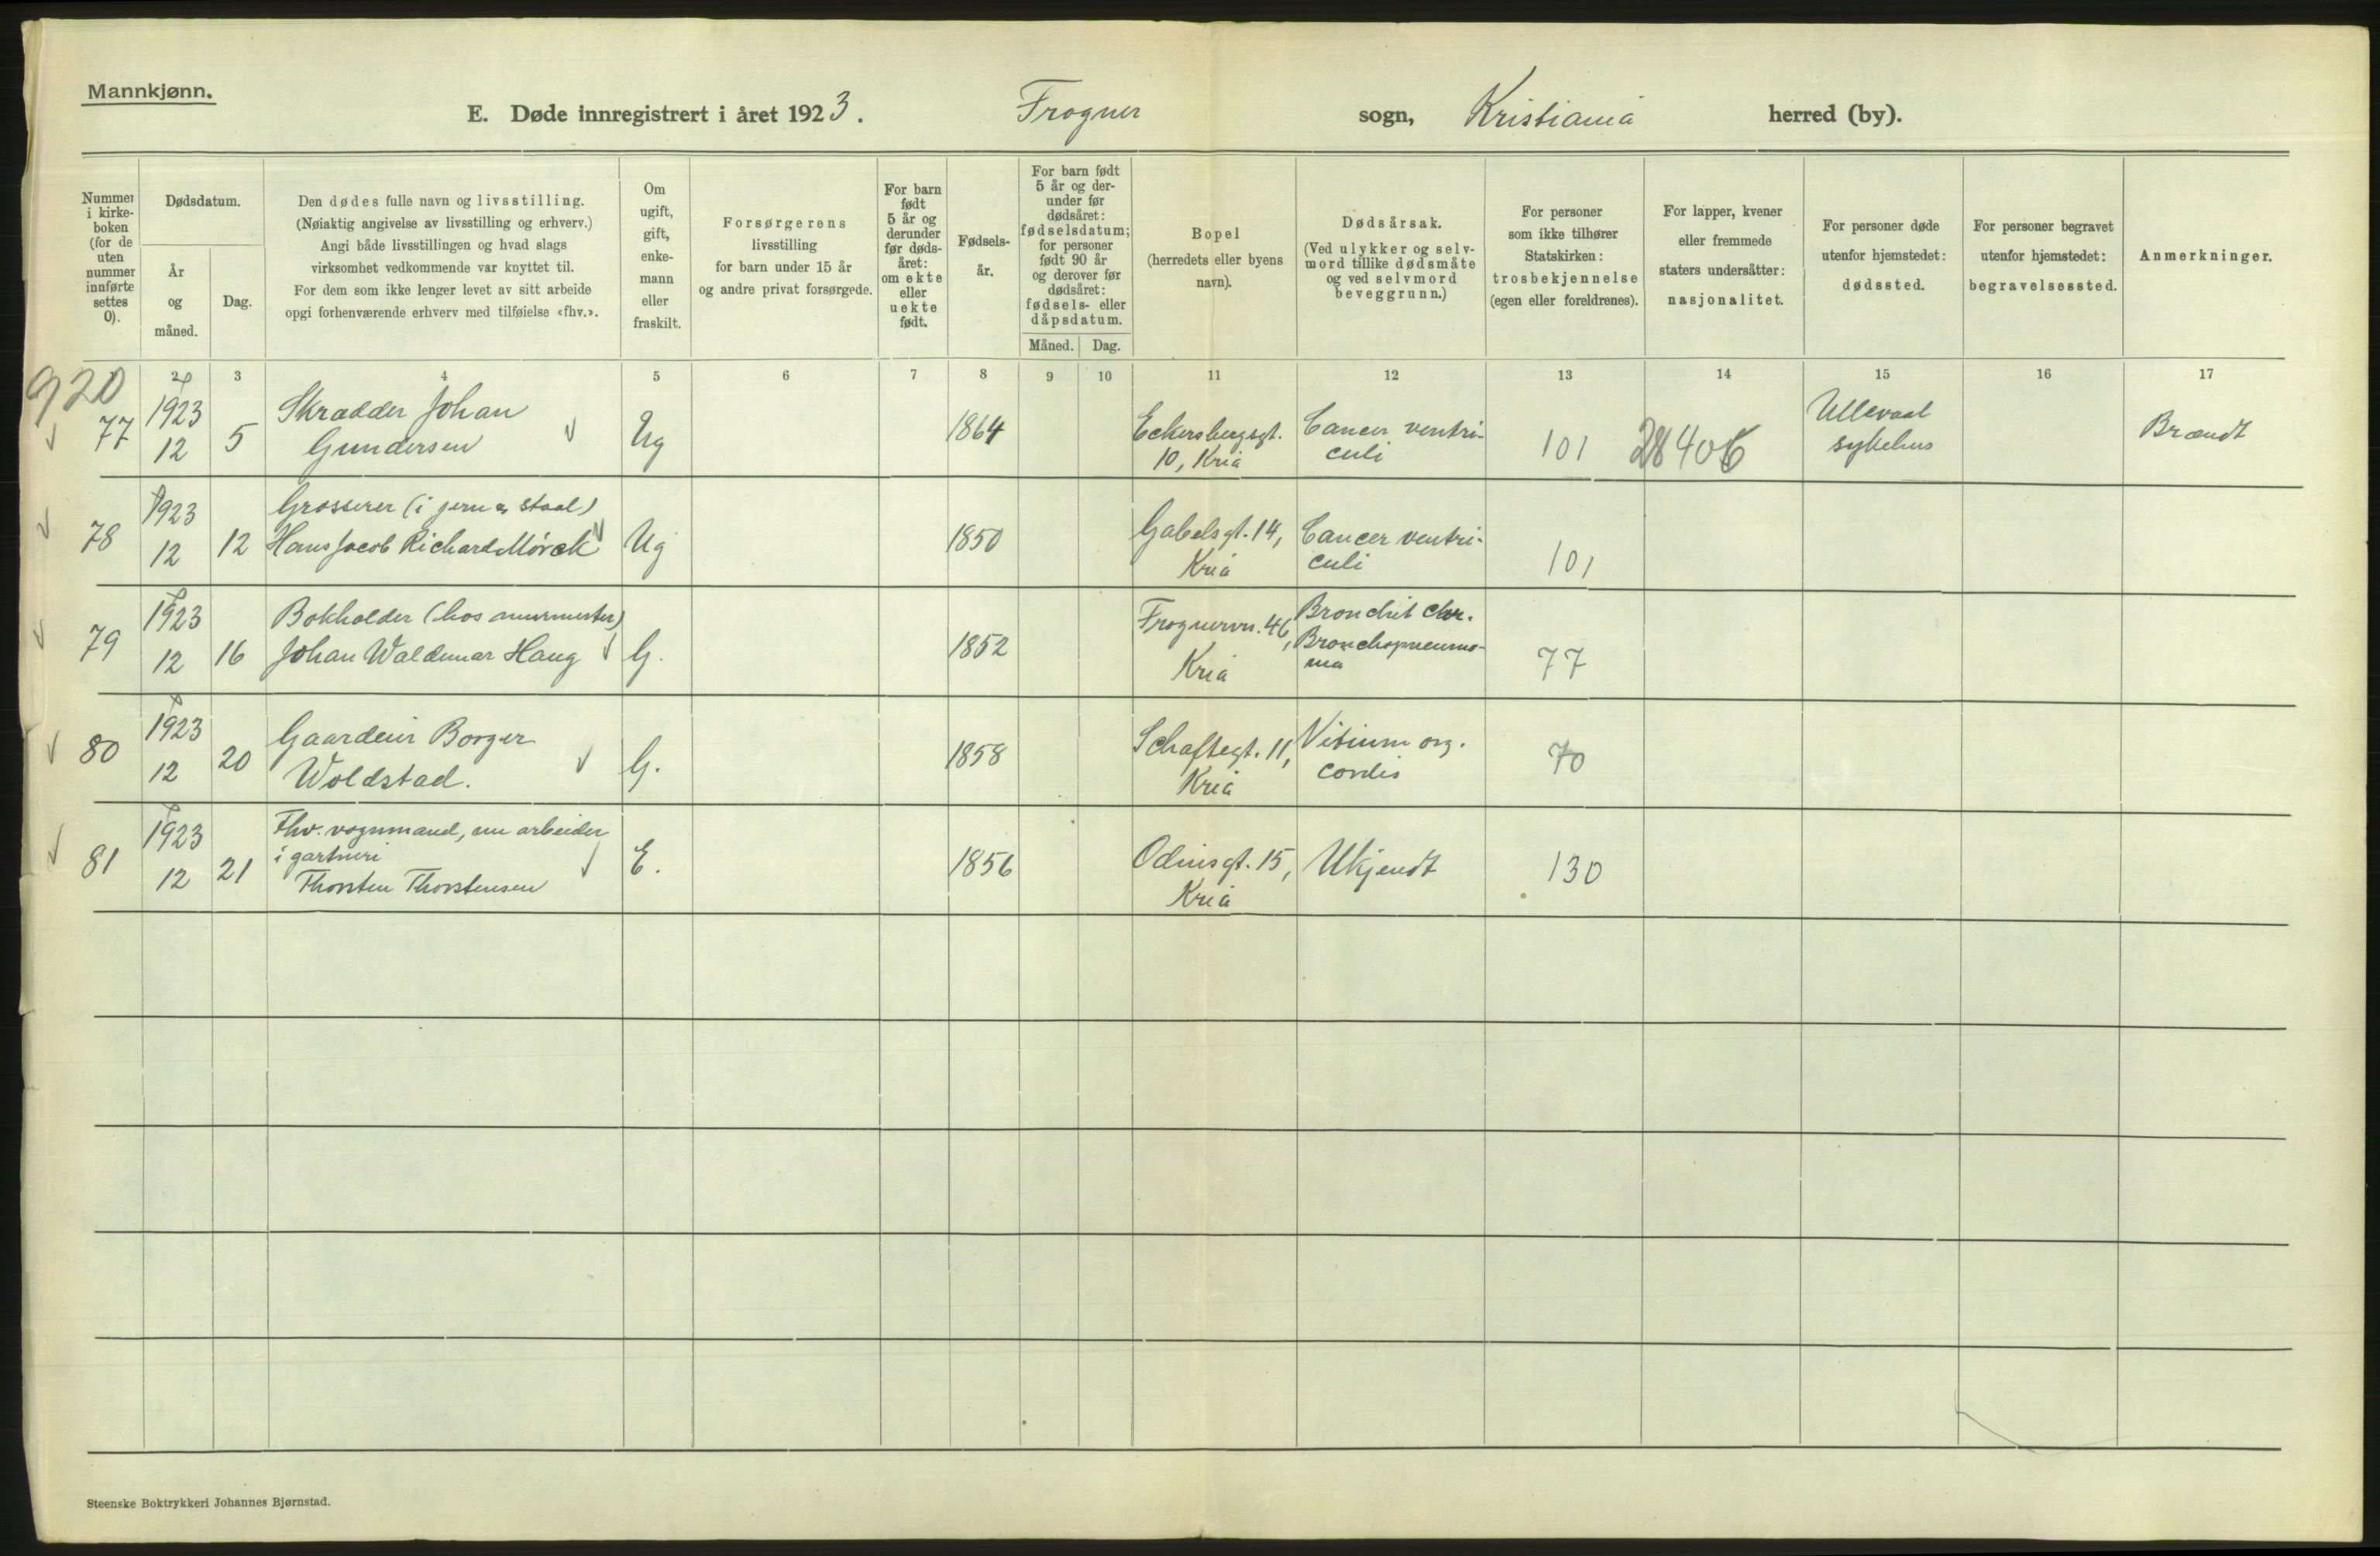 Mannkjønn.
E. Døde innregistrert i året 1923. Frogner sogn, Kristiania herred (by).
Nummer
i kirke-
boken
(for de
uten
nummer
innførte
settes
0).
Dødsdatum.
År
og
måned.
Dag.
Den dødes fulle navn og livsstilling.
(Nøiaktig angivelse av livsstilling og erhverv.)
Angi både livsstillingen og hvad slags
virksomhet vedkommende var knyttet til.
For dem som ikke lenger levet av sitt arbeide
opgi forhenværende erhverv med tilføielse «fhv.».
Om
ugift,
gift,
enke-
mann
eller
fraskilt.
Forsørgerens
livsstilling
for barn under 15 år
og andre privat forsørgede.
For barn
født
5 år og
derunder
før døds-
året:
om ekte
eller
uekte
født.
Fødsels-
år.
For barn født
5 år og der-
under før
dødsåret:
fødselsdatum;
for personer
født 90 år
og derover før
dødsåret:
fødsels- eller
dåpsdatum.
Måned. Dag.
Bopel
(herredets eller byens
navn).
Dødsårsak.
(Ved ulykker og selv-
mord tillike dødsmåte
og ved selvmord
beveggrunn.)
For personer
som ikke tilhører
Statskirken:
trosbekjennelse
(egen eller foreldrenes).
For lapper, kvener
eller fremmede
staters undersåtter:
nasjonalitet.
For personer døde
utenfor hjemstedet:
dødssted.
For personer begravet
utenfor hjemstedet:
begravelsessted.
Anmerkninger.
2 3 4 5 6 7 8 9 10 11 12 13 14 15 16 17
920
77
1923
12
5
Skrædder Johan
Gundersen
Ug
1864
Eckersbergsgt.
10, Kria
Cancer ventri-
culi
101
28406
Ullevaal
sykehus
Brændt
78
1923
12
12
Grosserer (i jern & staal)
Hans Jacob Richard Mörck
Ug
1850
Gabelsgt. 14,
Kria
Cancer ventri-
culi
101
79
1923
12
16
Bokholder (hos murmester)
Johan Waldemar Haug
G.
1852
Frognervn. 46,
Kria
Bronchit chr.
Bronchopneumo-
nia
77
80
1923
12
20
Gaardeier Borger
Woldstad.
G.
1858
Schaftegt. 11,
Kria
Vitium org.
cordis
70
81
1923
12
21
Fhv. vognmand, nu arbeider
i gartneri
Thorsten Thorstensen
E.
1856
Odinsgt. 15,
Kria
Ukjendt
130
Steenske Boktrykkeri Johannes Bjørnstad.